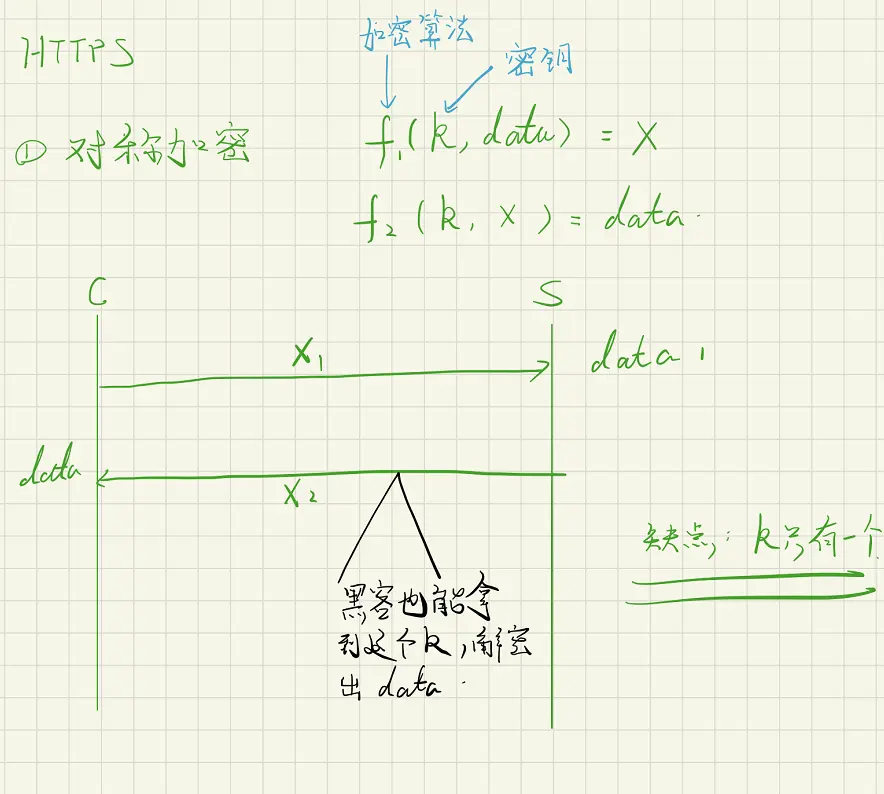 HTTPS
加密算法
密钥
① 对称加密
f₁(k, data) = X
f₂(k, X) = data.
C
S
X₁
data 1
data
X₂
缺点: k只有一个
黑客也能拿
到这个k,解密
出 data.